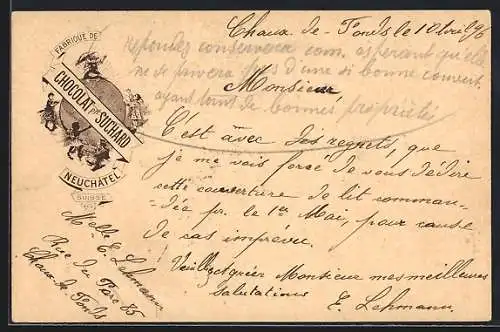 Chaux-de-Fonds le 10 Avril 96
FABRIQUE DE
CHOCOLAT PH. SUCHARD
NEUCHÂTEL
SUISSE
repondez conservera com. esperant qu'elle
ne se privera pas d'une si bonne couvert.
ayant tout de bonnes propriétés
Monsieur
C'est avec des regrets, que
je me vois forcé de vous dédire
cette couverture de lit comman-
dée pr. le 1er Mai, pour cause
de cas imprévu.
Veuillez agréer Monsieur mes meilleures
salutations
E. Lehmann.
Melle E. Lehmann
Rue du Parc 85
Chaux-de-Fonds